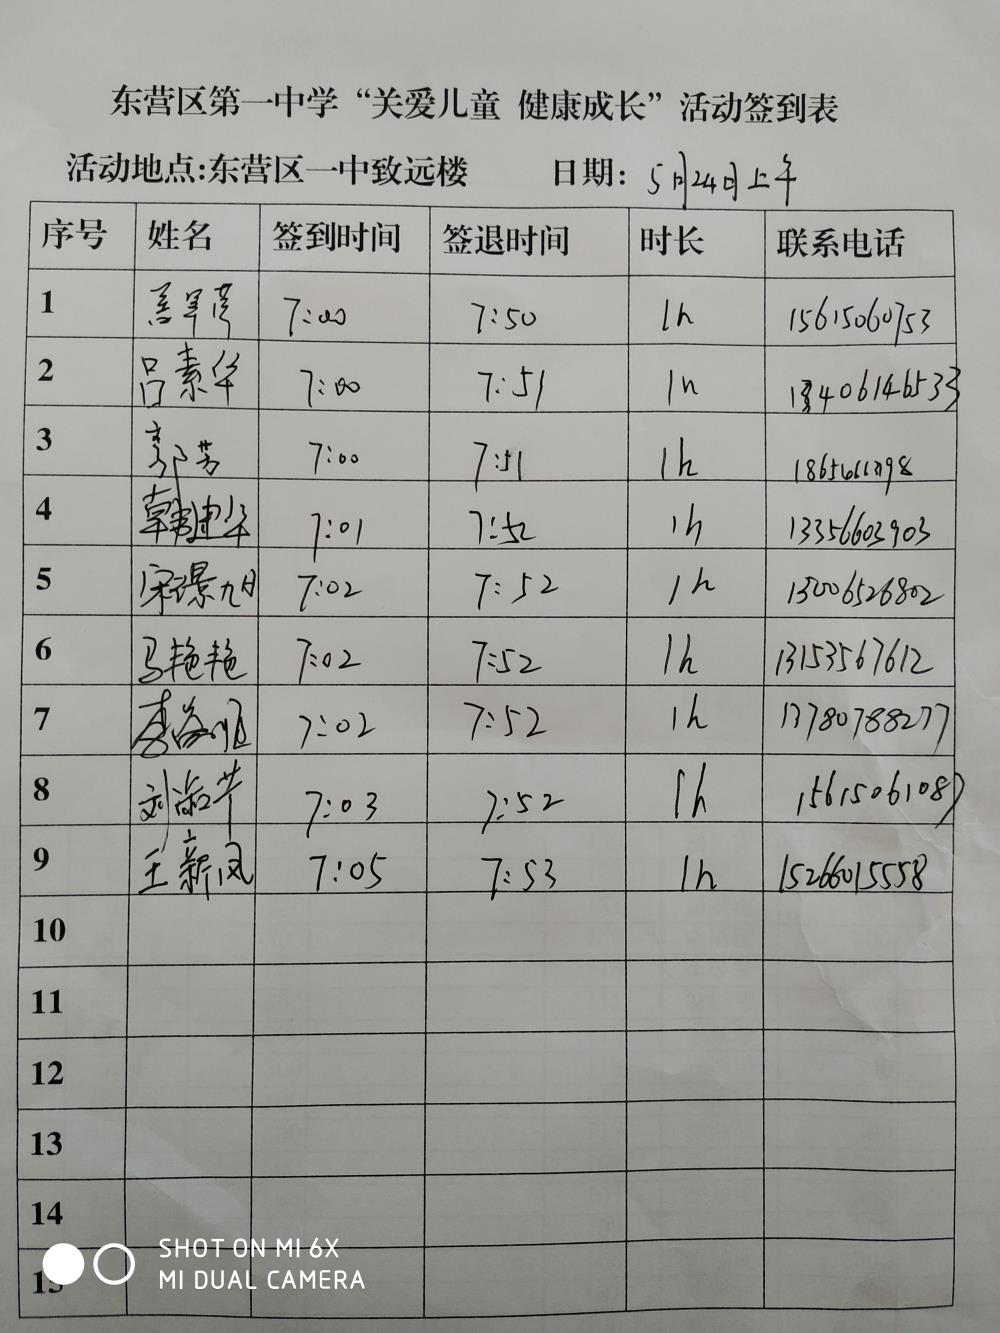 东营区第一中学“关爱儿童 健康成长”活动签到表
活动地点:东营区一中致远楼 日期: 5月24日上午
序号 姓名 签到时间 签退时间 时长 联系电话
1 7:00 7:50 1h 15615060753
2 吕素华 7:00 7:51 1h 13406146533
3 郭芳 7:00 7:51 1h
4 韩建华 7:01 7:52 1h 13356603903
5 宋璟旭 7:02 7:52 1h 13006526802
6 马艳艳 7:02 7:52 1h 13153567612
7 7:02 7:52 1h 13780788277
8 刘淑芹 7:03 7:52 1h 15615061087
9 王新凤 7:05 7:53 1h 15266015558
10
11
12
13
14
15
SHOT ON MI 6X
MI DUAL CAMERA